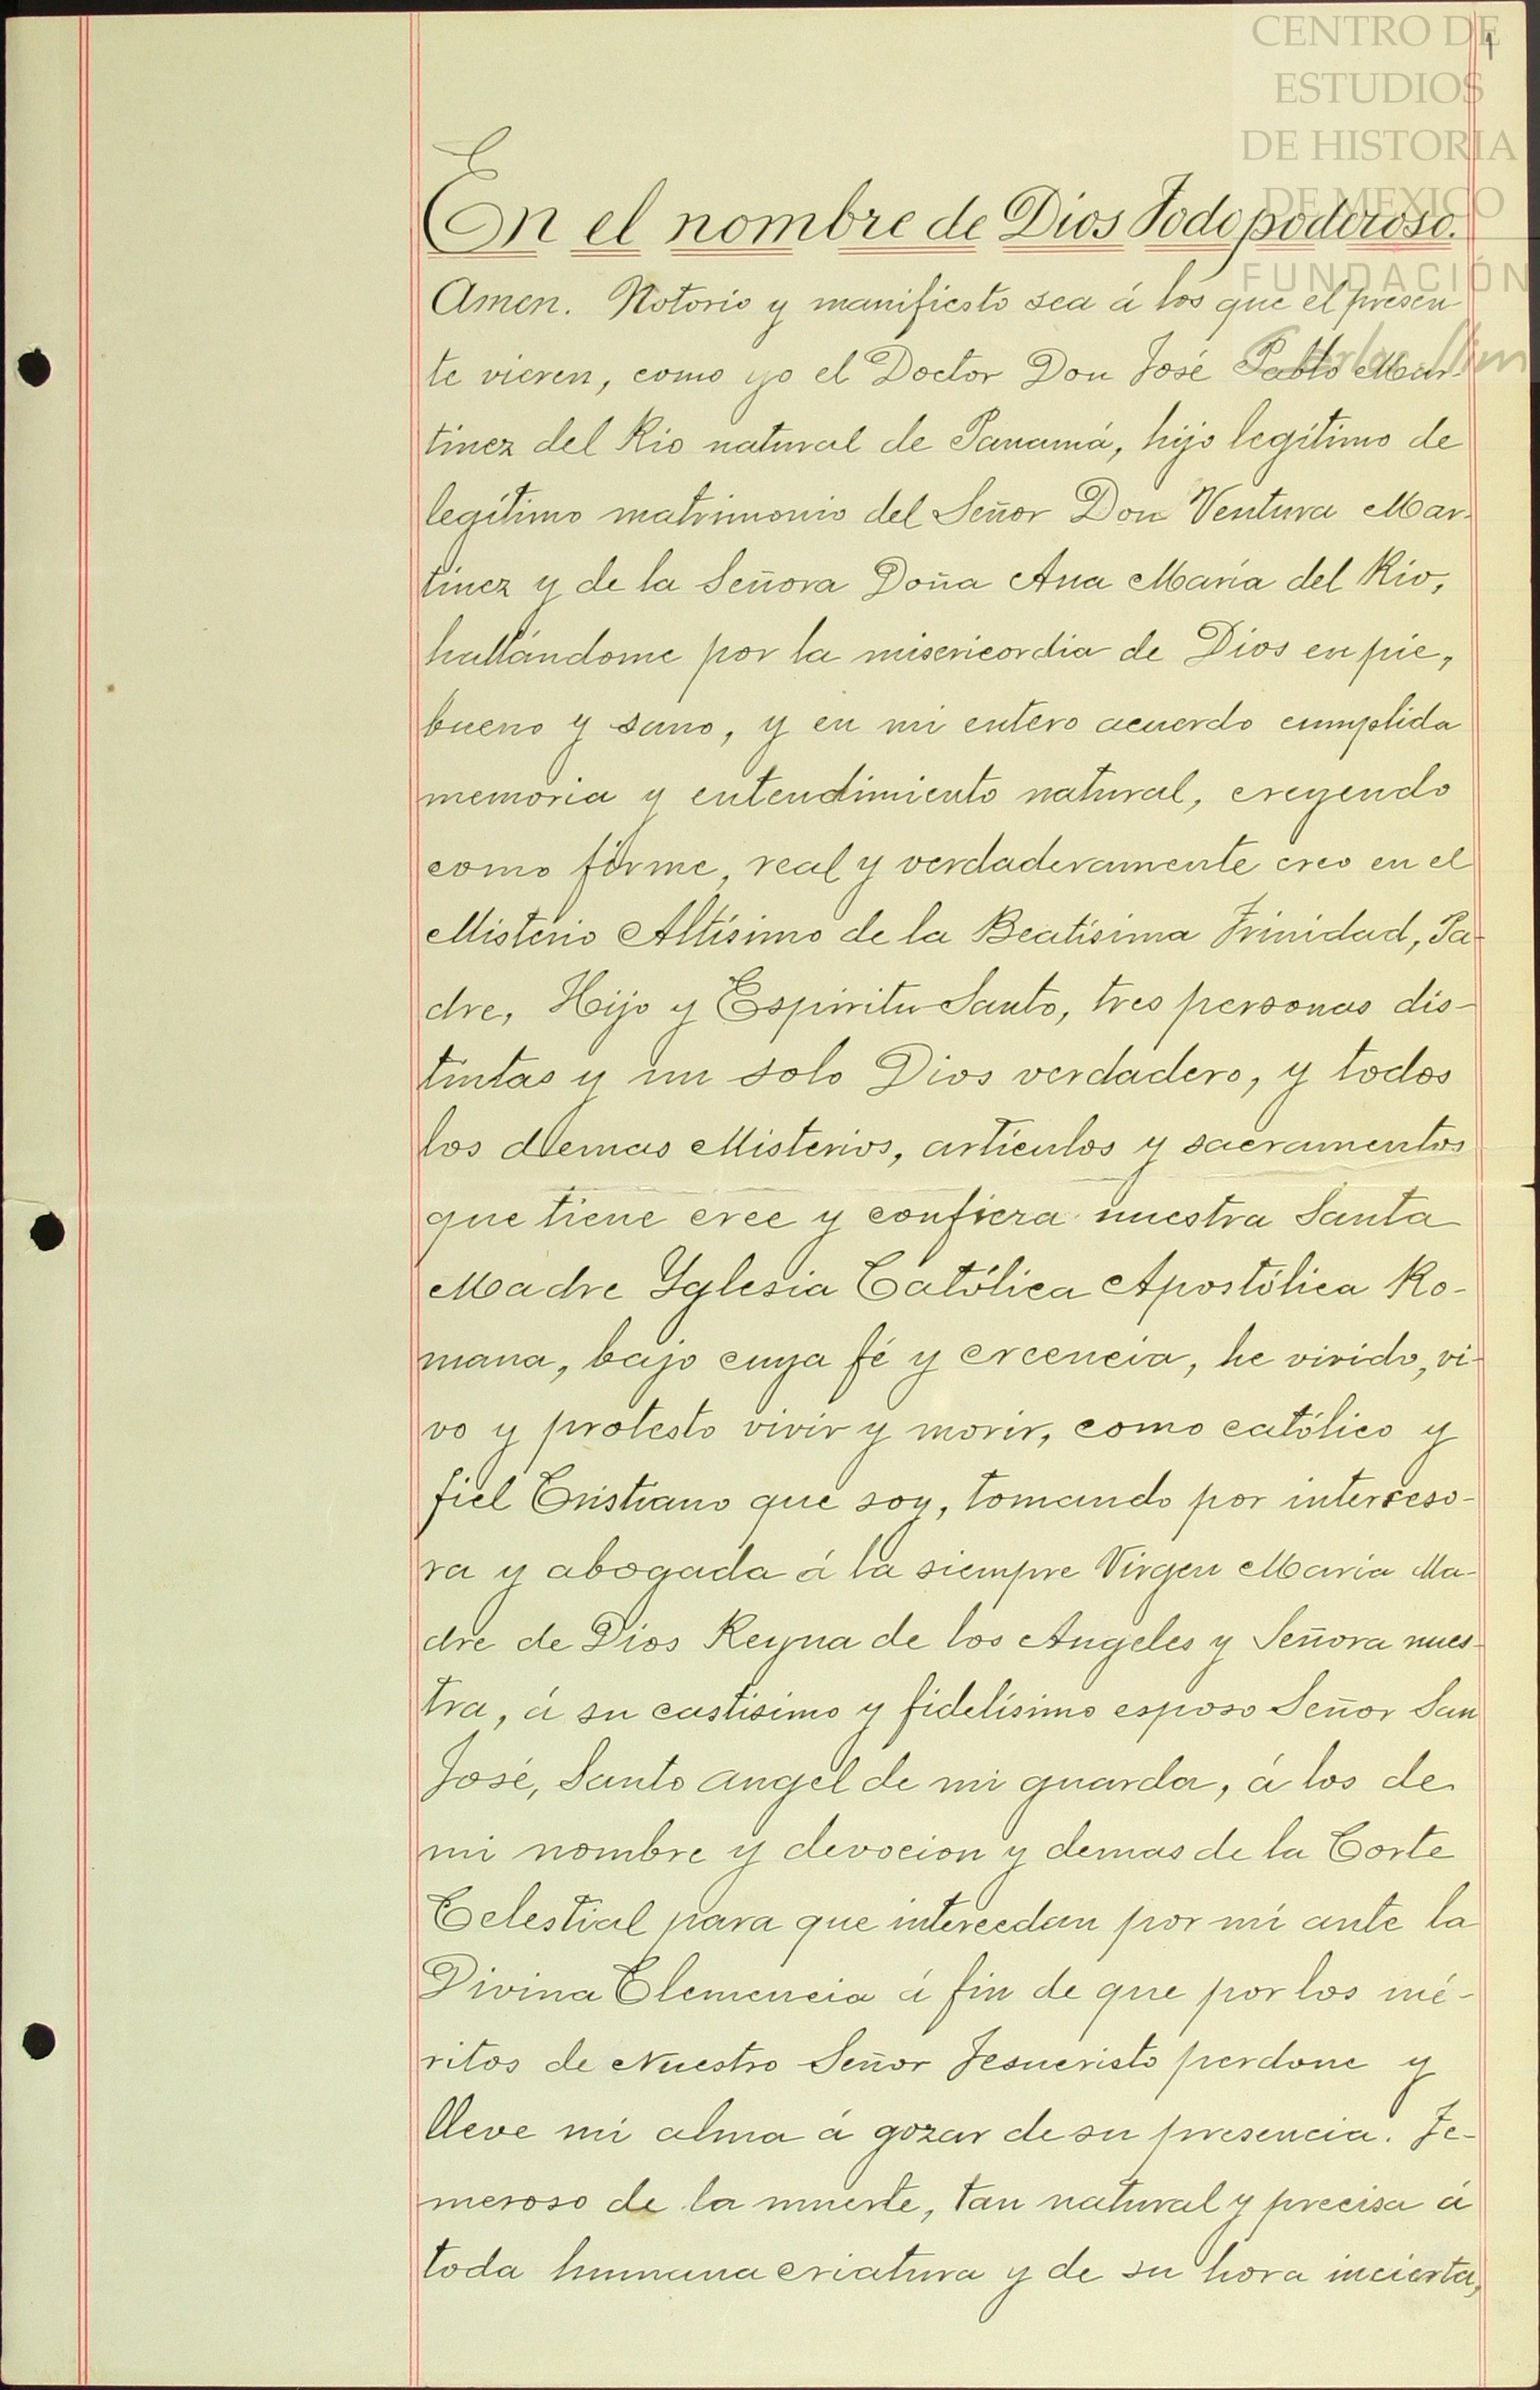 CENTRO DE
ESTUDIOS
DE HISTORIA
DE MEXICO
FUNDACIÓN
Carlos Slim
1
En el nombre de Dios Todopoderoso.
Amen. Notorio y manifiesto sea á los que el presen-
te vieren, como yo el Doctor Don José Pablo Mar-
tinez del Rio natural de Panamá, hijo legítimo de
legítimo matrimonio del Señor Don Ventura Mar-
tinez y de la Señora Doña Ana María del Rio,
hallándome por la misericordia de Dios en pie,
bueno y sano, y en mi entero acuerdo cumplida
memoria y entendimiento natural, creyendo
como firme, real y verdaderamente creo en el
Misterio Altísimo de la Beatísima Trinidad, Pa-
dre, Hijo y Espiritu Santo, tres personas dis-
tintas y un solo Dios verdadero, y todos
los demas Misterios, artículos y sacramentos
que tiene cree y confieza nuestra Santa
Madre Yglesia Católica Apostólica Ro-
mana, bajo cuya fé y creencia, he vivido, vi-
vo y protesto vivir y morir, como católico y
fiel Cristiano que soy, tomando por interceso-
ra y abogada á la siempre Virgen María Ma-
dre de Dios Reyna de los Angeles y Señora nues-
tra, á su castisimo y fidelísimo esposo Señor San
José, Santo angel de mi guarda, á los de
mi nombre y devocion y demas de la Corte
Celestial para que intercedan por mí ante la
Divina Clemencia á fin de que por los mé-
ritos de Nuestro Señor Jesucristo perdone y
lleve mi alma á gozar de su presencia. Te-
meroso de la muerte, tan natural y precisa á
toda humana criatura y de su hora incierta,